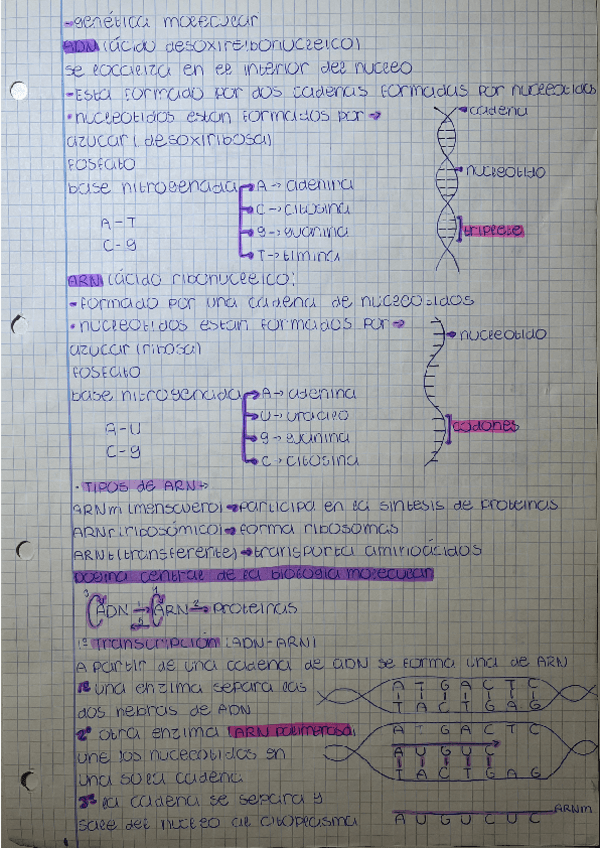 -genética molecular
ADN (ácido desoxirribonucleico)
se localiza en el interior del nucleo
-Está formado por dos cadenas formadas por nucleotidos
•nucleotidos estan formados por→
→cadena
azucar (desoxirribosa)
FOSFATO
→nucleotido
base nitrogenada
A→adenina
C→citosina
g→guanina
T→timina
A-T
C-g
triplete
ARN (ácido ribonucleico):
-formado por una cadena de nucleotidos
•nucleotidos estan formados por→
→nucleotido
azucar (ribosa)
FOSFATO
base nitrogenada
A→adenina
U→uracilo
g→guanina
C→citosina
A-U
C-g
codones
•TIPOS de ARN→
ARNm (mensajero)→participa en la sintesis de proteinas
ARNr (ribosómico)→forma ribosomas
ARNt (transferente)→transporta aminoácidos
Dogma central de la biología molecular
ADN 1→ ←2 ARN 3→ proteinas
1º Transcripción (ADN-ARN)
A partir de una cadena de ADN se forma una de ARN
1º una enzima separa las
dos hebras de ADN
A T G A C T C
T A C T G A G
2º otra enzima (ARN polimerasa)
une los nucleotidos en
una sola cadena
A T G A C T C
A U G U C
T A C T G A G
3º la cadena se separa y
sale del nucleo al citoplasma
ARNm
A U G U C U C